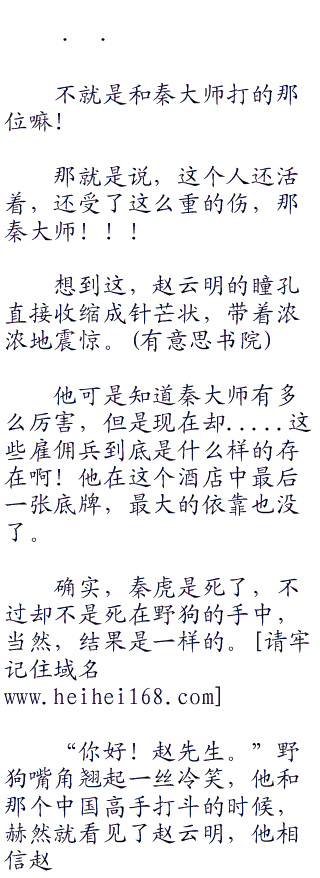 . .
不就是和秦大师打的那
位嘛！
那就是说，这个人还活
着，还受了这么重的伤，那
秦大师！！！
想到这，赵云明的瞳孔
直接收缩成针芒状，带着浓
浓地震惊。(有意思书院)
他可是知道秦大师有多
么厉害，但是现在却.....这
些雇佣兵到底是什么样的存
在啊！他在这个酒店中最后
一张底牌，最大的依靠也没
了。
确实，秦虎是死了，不
过却不是死在野狗的手中，
当然，结果是一样的。[请牢
记住域名
www.heihei168.com]
“你好！赵先生。”野
狗嘴角翘起一丝冷笑，他和
那个中国高手打斗的时候，
赫然就看见了赵云明，他相
信赵